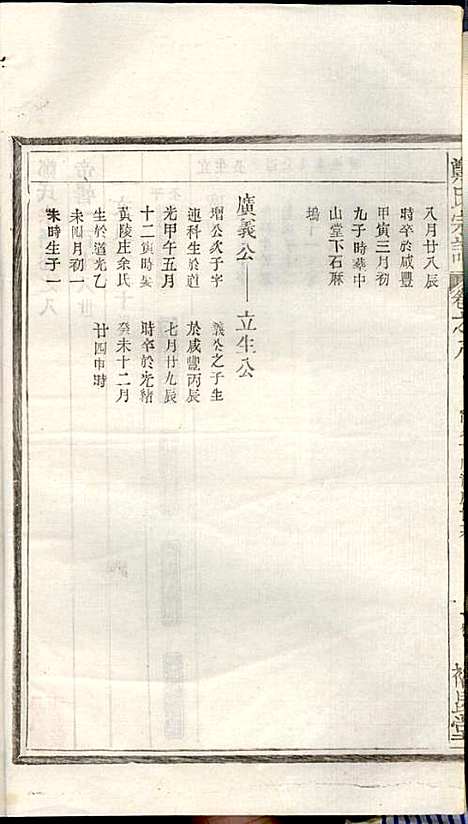 鄭氏宗譜
卷之八
八月廿八辰
時卒於咸豐
甲寅三月初
九子時葬中
山堂下石麻
塢
廣義公——立生公
增公次子字
連科生於道
光甲午五月
十二寅時娶
黃陵庄余氏
生於道光乙
未閏月初一
未時生子一
義公之子生
於咸豐丙辰
七月廿九辰
時卒於光緒
癸未十二月
廿四申時